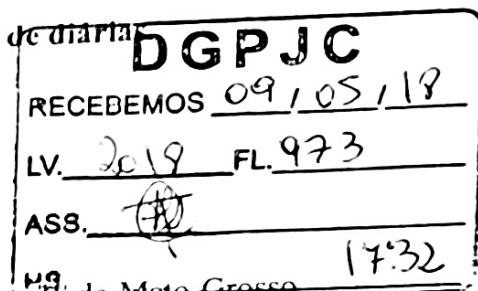 de diárias
DGPJC
RECEBEMOS 09/05/18
LV. 2018 FL. 973
ASS.
HS 17:32
de Mato Grosso